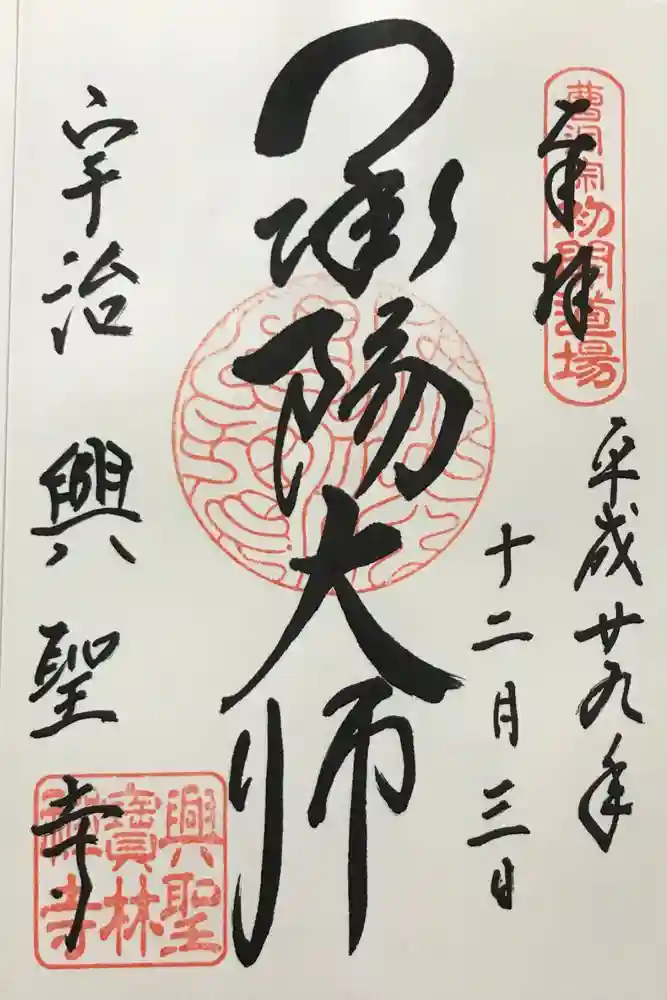 奉拝
曹洞宗初開道場
平成廿九年
十二月三日
承陽大師
宇治 興聖寺
興聖
寶林
禪寺